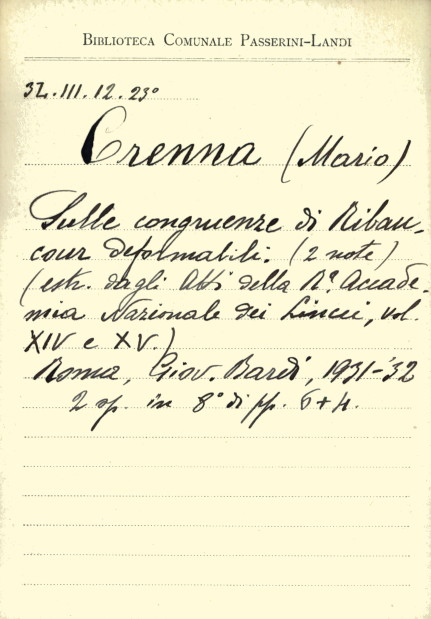 BIBLIOTECA COMUNALE PASSERINI-LANDI
3Z.III.12.23°
Crenna (Mario)
Sulle congruenze di Ribau-
cour deformabili. (2 note)
(estr. dagli Atti della Rª. Accade-
mia Nazionale dei Lincei, vol.
XIV e XV.)
Roma, Giov. Bardi, 1931-'32
2 op. in 8° di pp. 6+4.